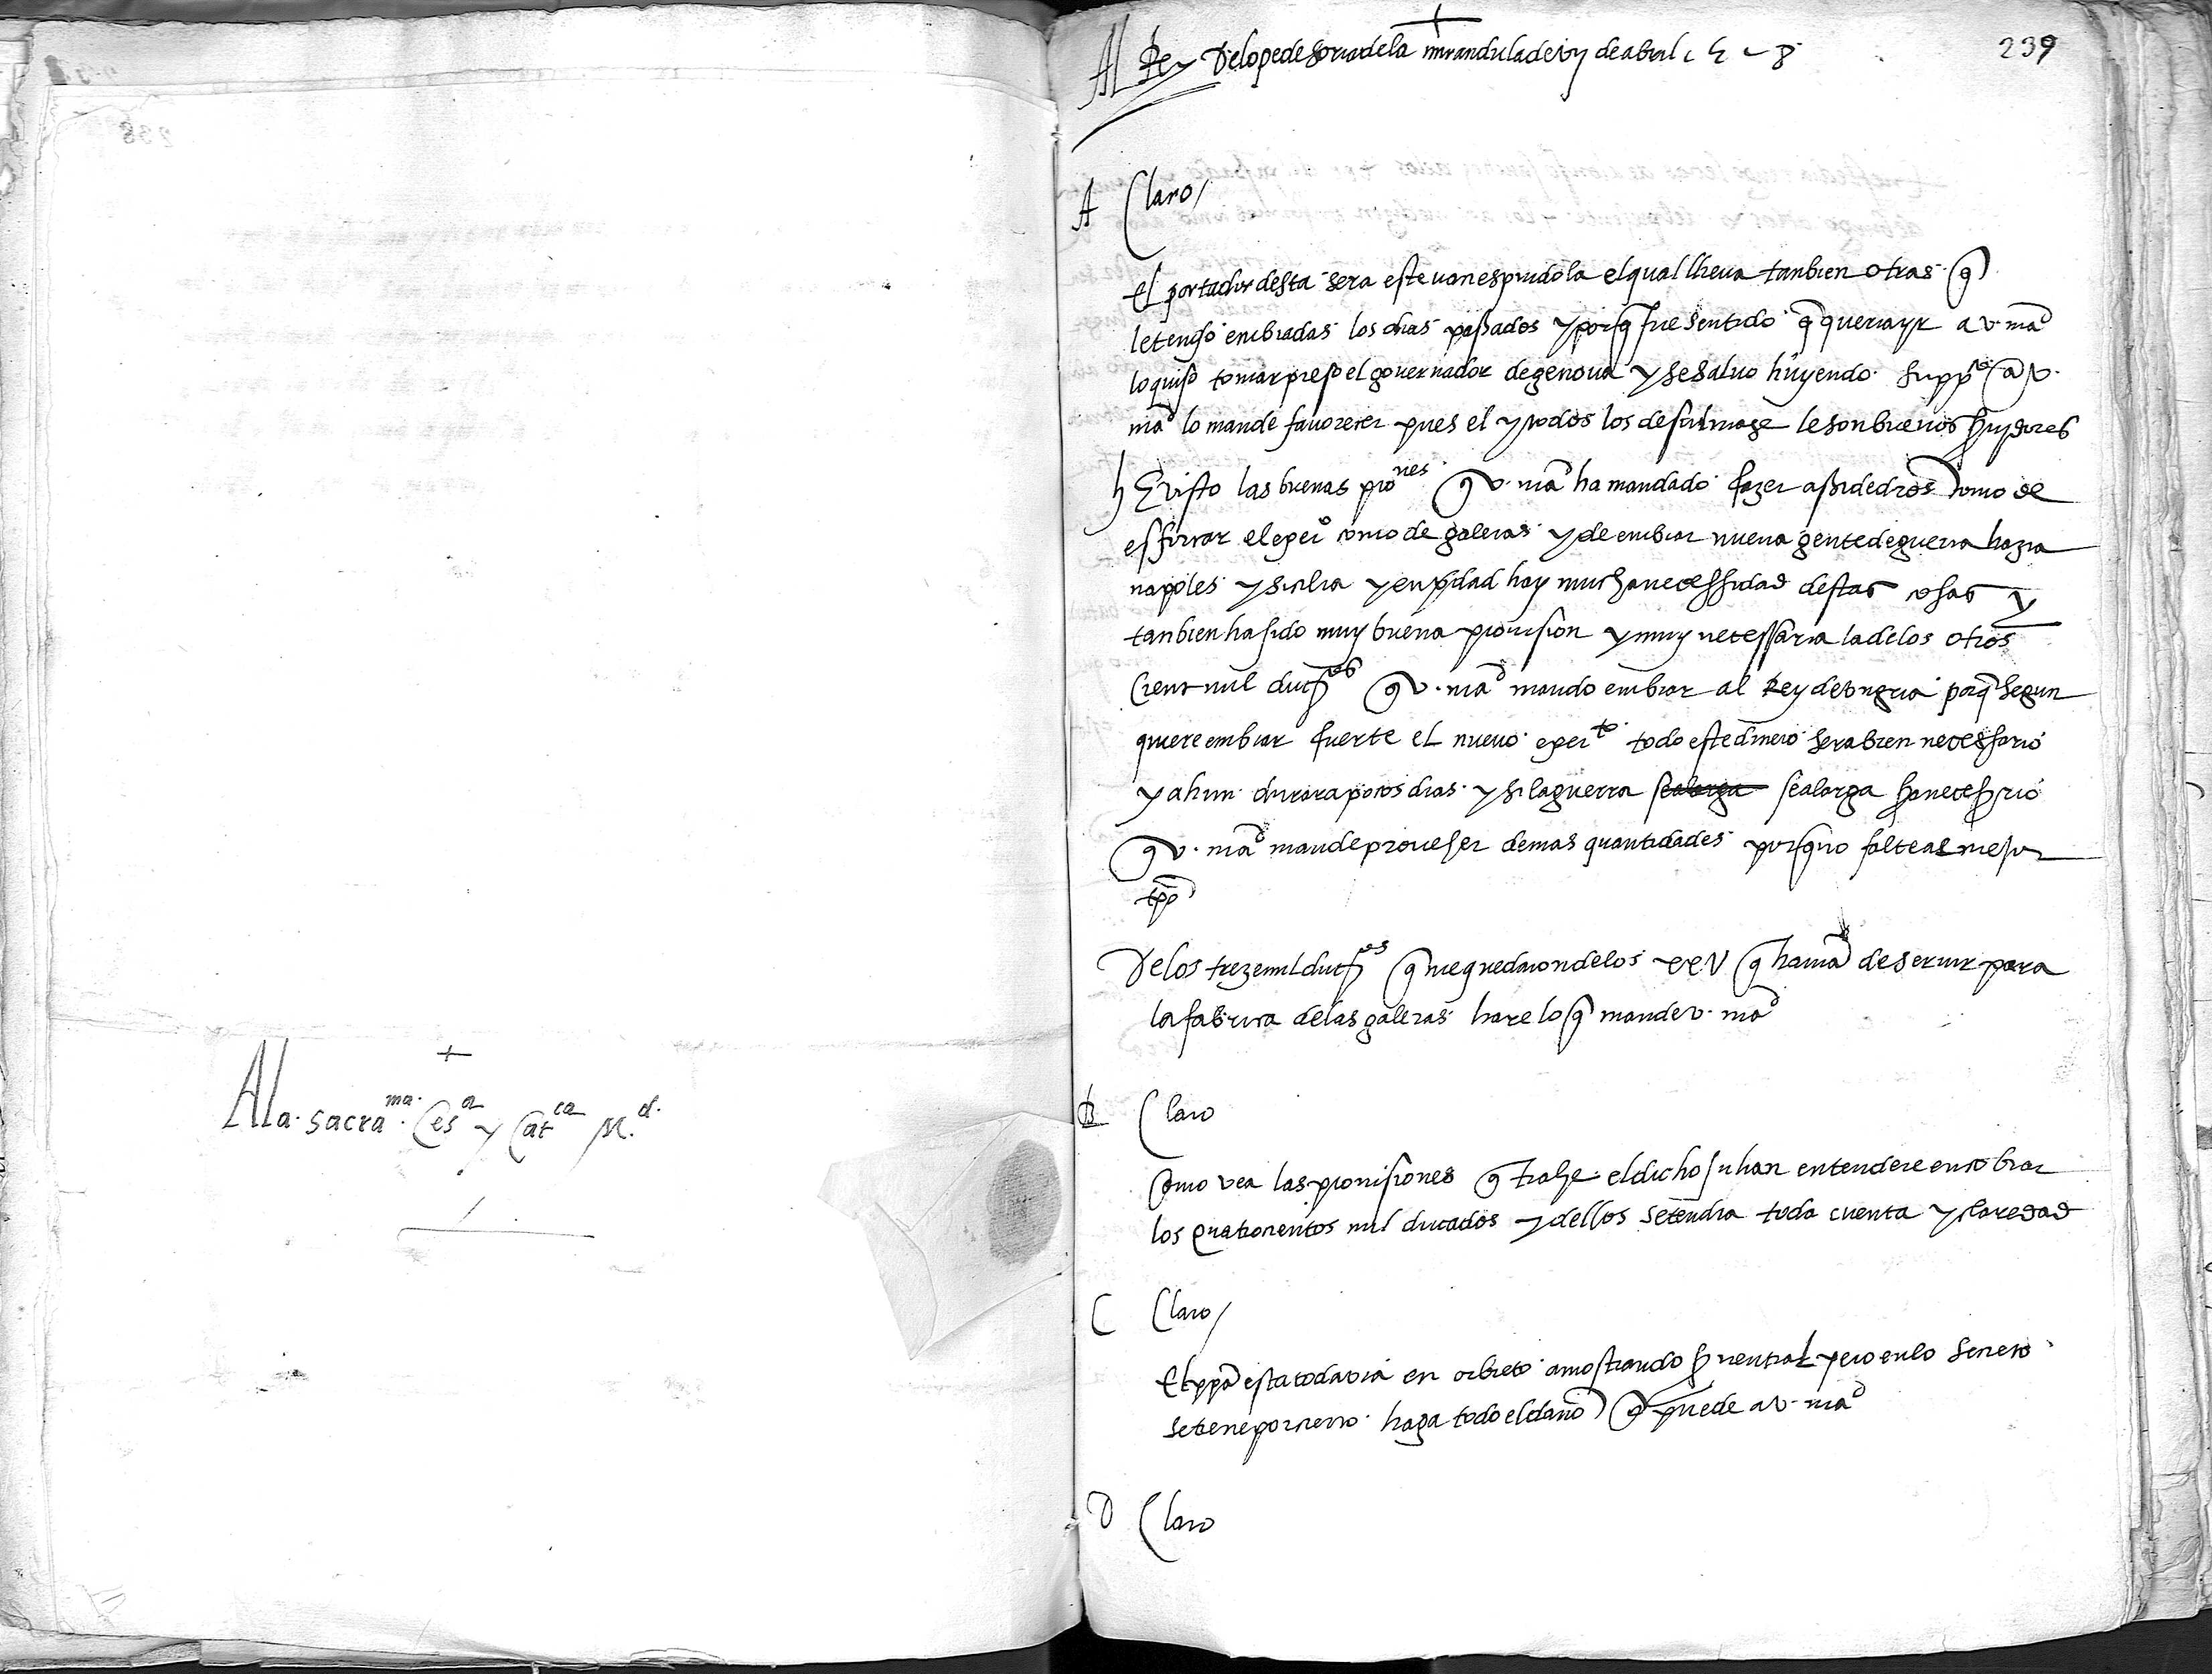 +
Ala. sacra ma. Ces a y Cat ca M. d.
+
239
Al Rey De lope de soria dela mirandula de vj de abril
A Claro /
el portador desta sera estevan espindola el qual lleva tanbien otras q
le tengo enbiadas los dias passados y porq fue sentido q queria yr a v. mad
lo quiso tomar preso el governador de genova y se salvo huyendo supp co a v.
mad lo mande favorecer pues el y todos los de su linage le son buenos
he visto las buenas pro nes q v. mad ha mandado fazer assi de dros como de
esforcar el exer o como de galeras y de enbiar nueva gente de guerra hazia
napoles y sicilia y en verdad hay mucha necessidad destas cosas y
tanbien ha sido muy buena provision y muy necessaria la delos otros
cient mil duc os q v. mad mando enbiar al Rey de vngria porq segun
quiere enbiar fuerte el nuevo exer to todo este dinero sera bien necessario
y ahun durara pocos dias y si la guerra se alarga se alarga sera necessrio
q v. mad mande proveher de mas quantidades porq no falte al mejor
tpo
De los treze mil duc os q me quedaron delos xxV q havia de servir para
la fabrica delas galeras hare lo q mande v. mad
B Claro
Como vea las provisiones q trahe el dicho juhan entendere en cobrar
los quatrocientos mil ducados y dellos se tendra toda cuenta y claredad
C Claro /
El ppa esta todavia en orbieto amostrando ser neutral pero en lo secreto
se tiene por cierto haga todo el daño q puede a v. mad
D Claro